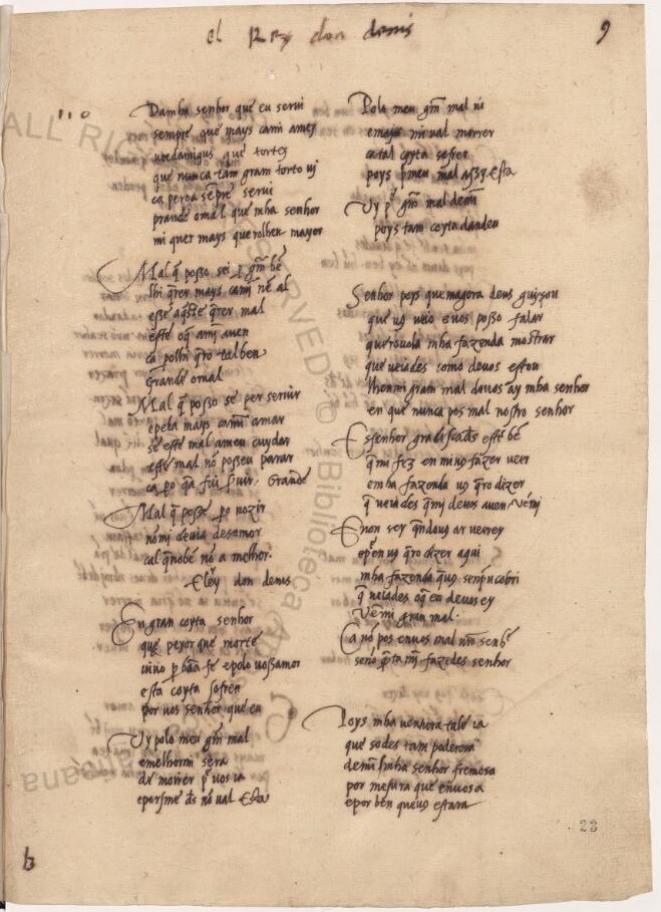 el Rey don denis
9
110
Damha senhor que eu serui
sempre que mays cami amey
ueedamigus que tortey
que nunca tam gram torto ui
ca peroa sēpre serui
grande omal que mha senhor
mi quer mays querolhen mayor
Mal q̄ posso sei
lhi q̄rer mays cami nē al
esse aq̄ste q̄rer mal
este oq̄ amī auen
ca polhi q̄ro tal ben
grande omal
Mal q̄ posso se per seruir
epela mays camī amar
se este mal ameu cuydar
este mal nō posseu parar
ca po q̄a fui seruir Grande
Mal q̄ posso po nozir
nōmi deuia desamor
cal q̄nobē nō a melhor.
El Rey don denis
En gran coyta senhor
que peyor que morte
uiuo p bōa fe epolo uossamor
esta coyta sofren
por uos senhor que eu
Uy polo meu gm̄ mal
emelhormi sera
de morrer p uos ia
eporsme ds nō ual Esta
Pola meu gm̄ mal ui
emays mi ual morrer
ca tal coyta sofrer
poys pmeu mal assy Esta
Uy p gm̄ mal demī
poys tam coyta dandeu
Senhor poys que magora deus guysou
que uꝯ ueio e uos posso falar
quero uola mha fazenda mostrar
que ueiades como deuos estou
Uēmi gram mal deuos ay mha senhor
en que nunca pos mal nostro senhor
E senhor gradescadꝯ este bē
q̄mi fez en miuꝯ fazer ueer
emha fazenda uꝯ q̄ro dizer
q̄ ueiades q̄mi deuos auen Uēmi
E non sey q̄ndouꝯ ar ueerey
epēn uꝯ q̄ro dizer aqui
mha fazenda q̄uꝯ senpēncobri
q̄ ueiades oq̄ eu deuos ey
Vēmi gran mal.
Ca nō pos enuos mal nrō senhr
senō q̄nta mī fazedes senhor
Poys mha uentura tal e ia
que sodes tam poderosa
demī mha senhor fremosa
por mesura que ēuos a
epor ben queuꝯ estara
b
23
ALL RIGHTS RESERVED © Biblioteca Apostolica Vaticana